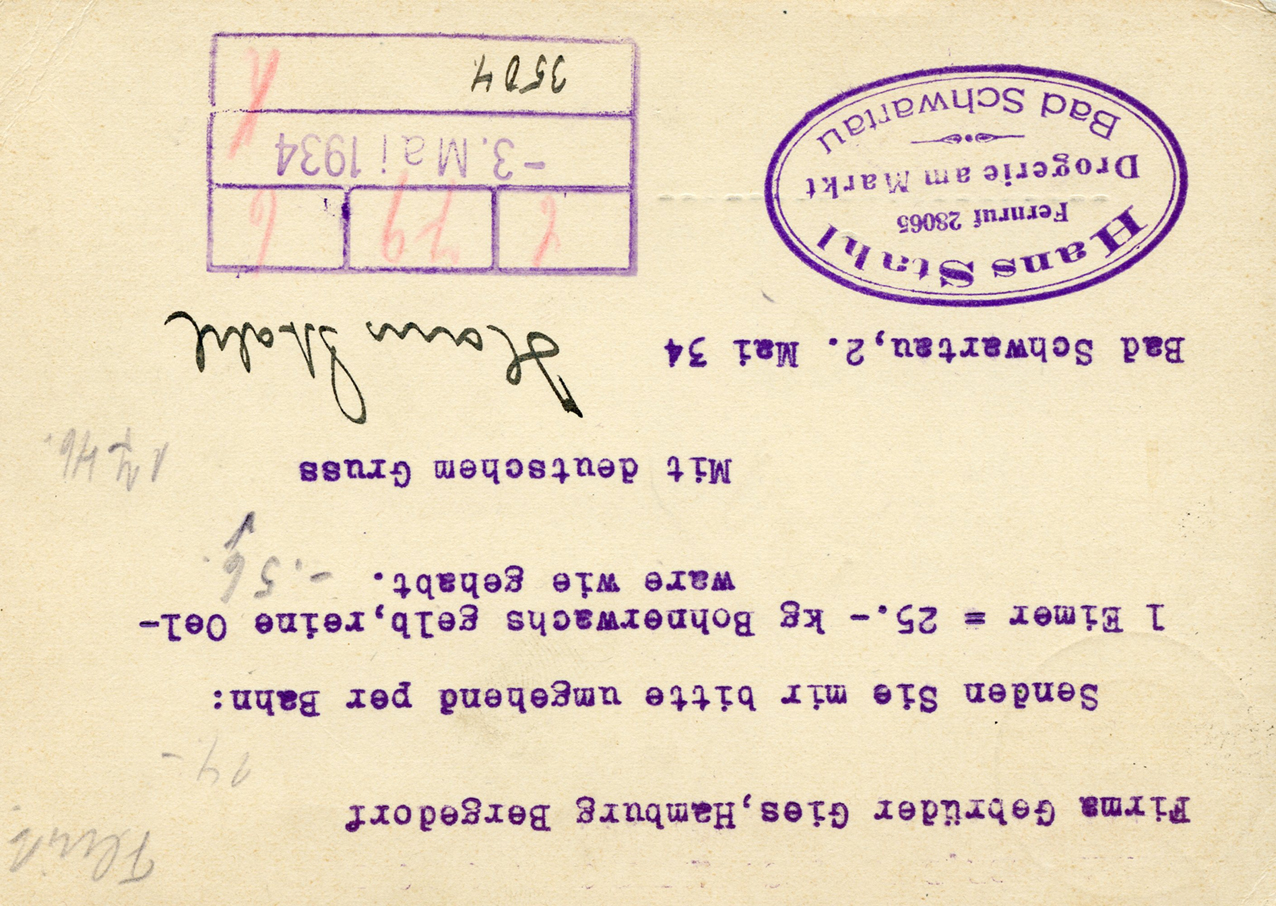 Firma Gebrüder Gies,Hamburg Bergedorf
Senden Sie mir bitte umgehend per Bahn:
1 Eimer = 25.- kg Bohnerwachs gelb,reine Oel-
ware wie gehabt.
Mit deutschem Gruss
Bad Schwartau,2. Mai 34
Hans Stahl
Hans Stahl
Fernruf 28065
Drogerie am Markt
Bad Schwartau
-3. Mai 1934
3504